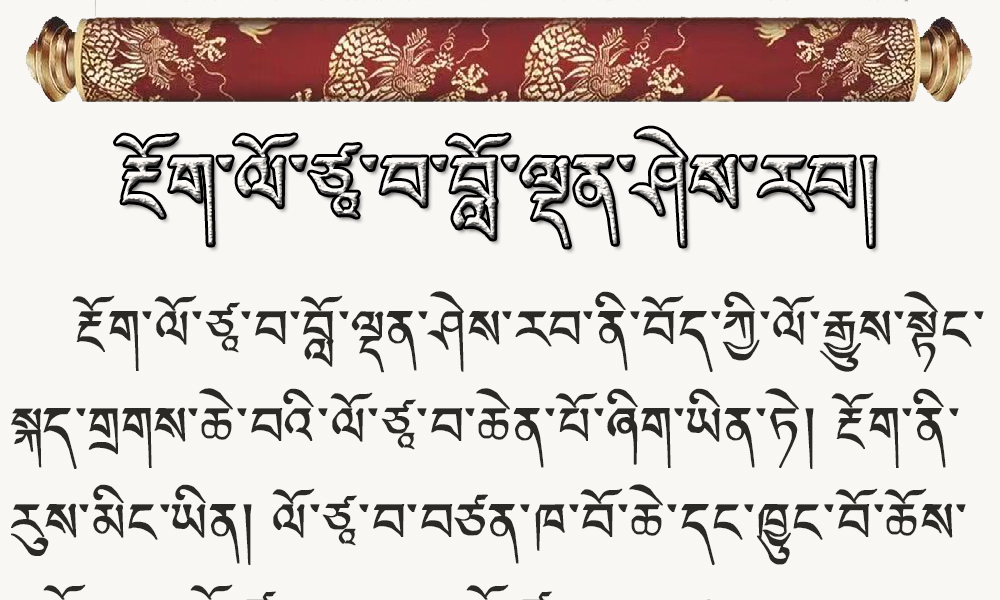 རྔོག་ལོ་ཙཱ་བ་བློ་ལྡན་ཤེས་རབ།
རྔོག་ལོ་ཙཱ་བ་བློ་ལྡན་ཤེས་རབ་ནི་བོད་ཀྱི་ལོ་རྒྱུས་སྟེང་
སྐད་གྲགས་ཆེ་བའི་ལོ་ཙཱ་བ་ཆེན་པོ་ཞིག་ཡིན་ཏེ། རྔོག་ནི་
རུས་མིང་ཡིན། ལོ་ཙཱ་བ་བཙན་ཁ་བོ་ཆེ་དང་ཁྱུང་བོ་ཆོས་